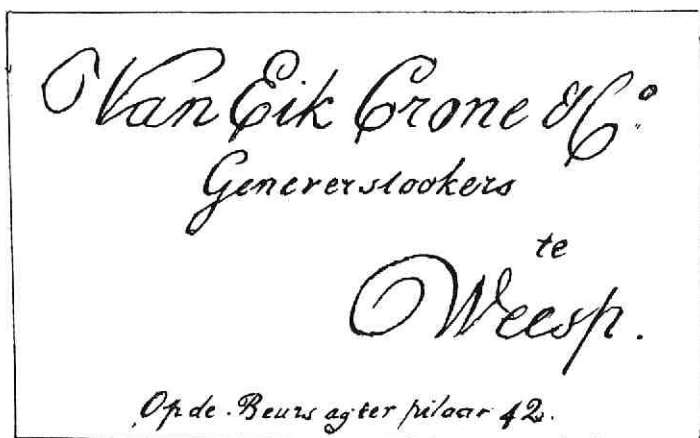 Van Eik Crone & Co.
Geneverstookers
te
Weesp.
Op de Beurs agter pilaar 42.